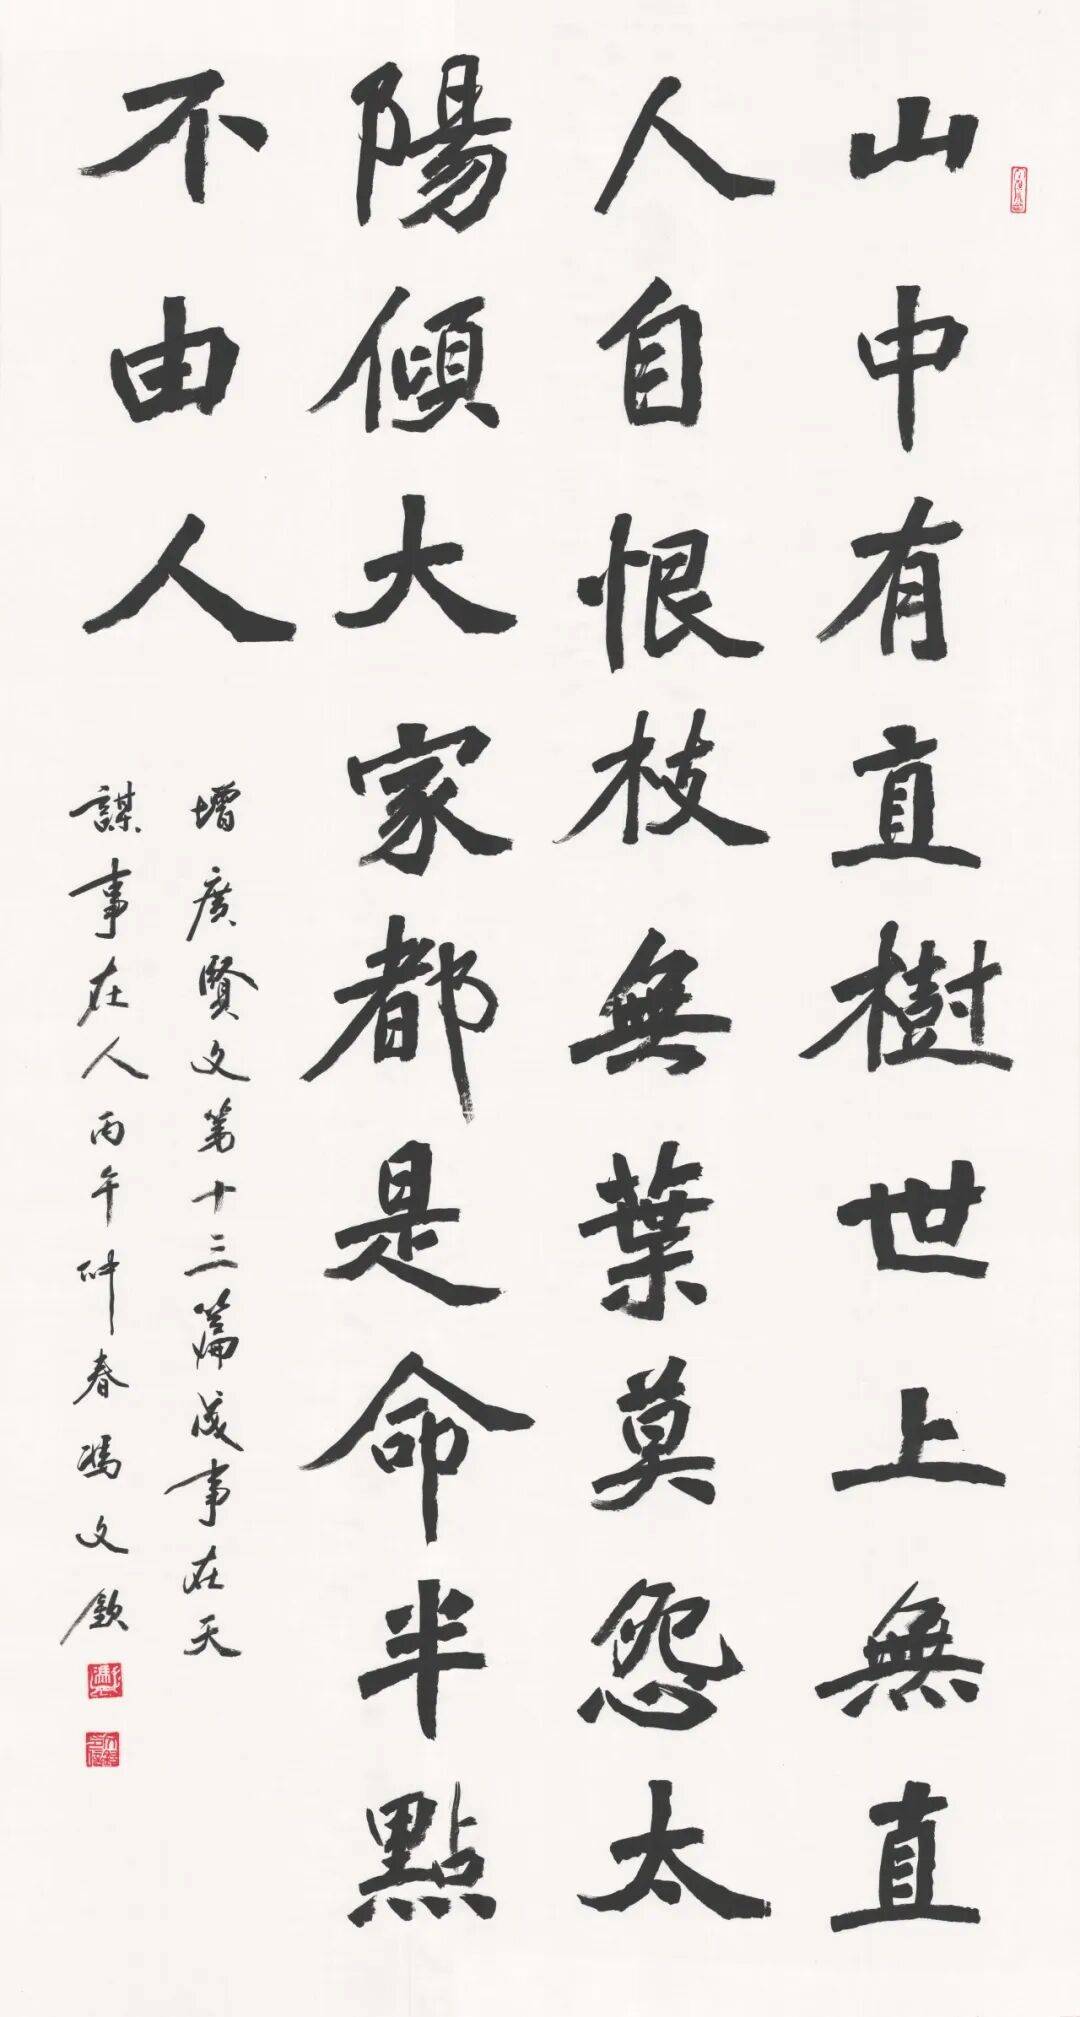 山中有直樹世上無直
人自恨枝無葉莫怨太
陽傾大家都是命半點
不由人
增廣賢文第十三篇成事在天
謀事在人丙午仲春馮文欽